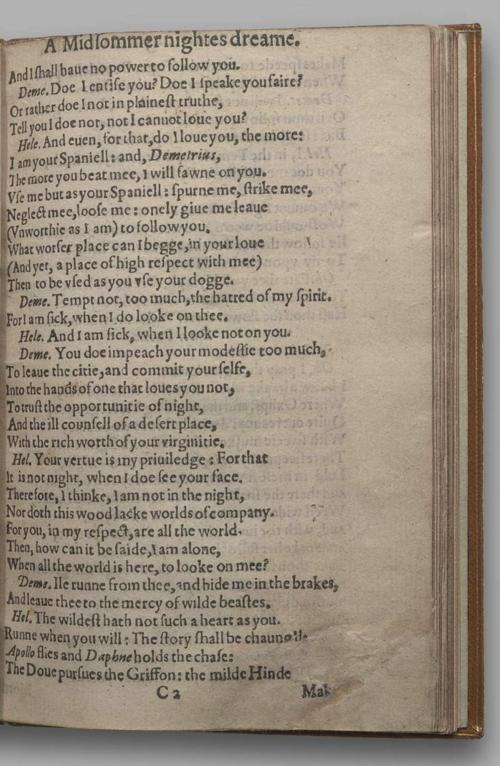 A Midsommer nightes dreame.
And I shall haue no power to follow you.
Deme. Doe I entise you? Doe I speake you faire?
Or rather doe I not in plainest truthe,
Tell you I doe not, not I cannot loue you?
Hele. And euen, for that, do I loue you, the more:
I am your Spaniell: and, Demetrius,
The more you beat mee, I will fawne on you.
Vse me but as your Spaniell: spurne me, strike mee,
Neglect mee, loose me: onely giue me leaue
(Vnworthie as I am) to follow you.
What worser place can I begge, in your loue
(And yet, a place of high respect with mee)
Then to be vsed as you vse your dogge.
Deme. Tempt not, too much, the hatred of my spirit.
For I am sick, when I do looke on thee.
Hele. And I am sick, when I looke not on you.
Deme. You doe impeach your modestie too much,
To leaue the citie, and commit your selfe,
Into the hands of one that loues you not,
To trust the opportunitie of night,
And the ill counsell of a desert place,
With the rich worth of your virginitie.
Hel. Your vertue is my priuiledge: For that
It is not night, when I doe see your face.
Therefore, I thinke, I am not in the night,
Nor doth this wood lacke worlds of company.
For you, in my respect, are all the world.
Then, how can it be saide, I am alone,
When all the world is here, to looke on mee?
Deme. Ile runne from thee, and hide me in the brakes,
And leaue thee to the mercy of wilde beastes.
Hel. The wildest hath not such a heart as you.
Runne when you will: The story shall be
Apollo flies and Daphne holds the chase:
The Doue pursues the Griffon: the milde Hinde
C2 Mak